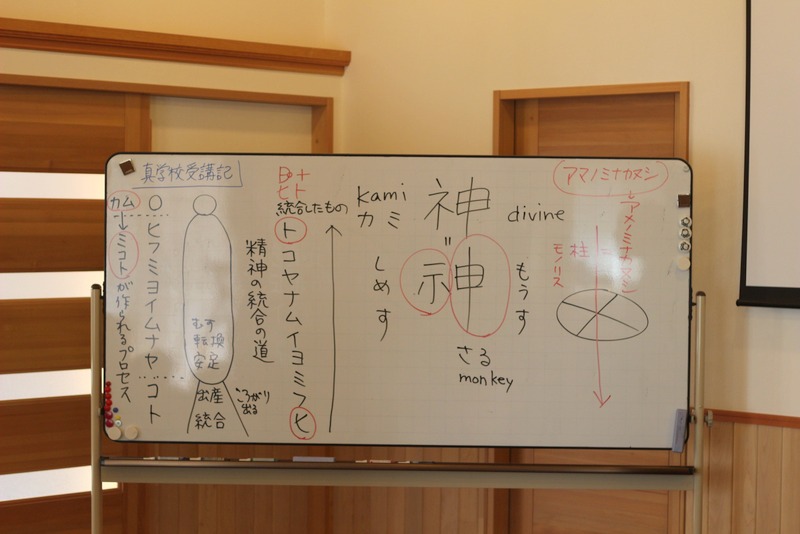 真学校受講記
カム
ミコトが作られるプロセス
ヒフミヨイムナヤ
コト
むす
転換
安定
出産
統合
ころがり
出る
精神の統合の道
ヒト
統合したもの
トコヤナムイヨミフヒ
kami
カミ
神
divine
しめす
示申
もうす
さる
monkey
アマノミナカヌシ
アメノミナカヌシ
柱 =
モノリス